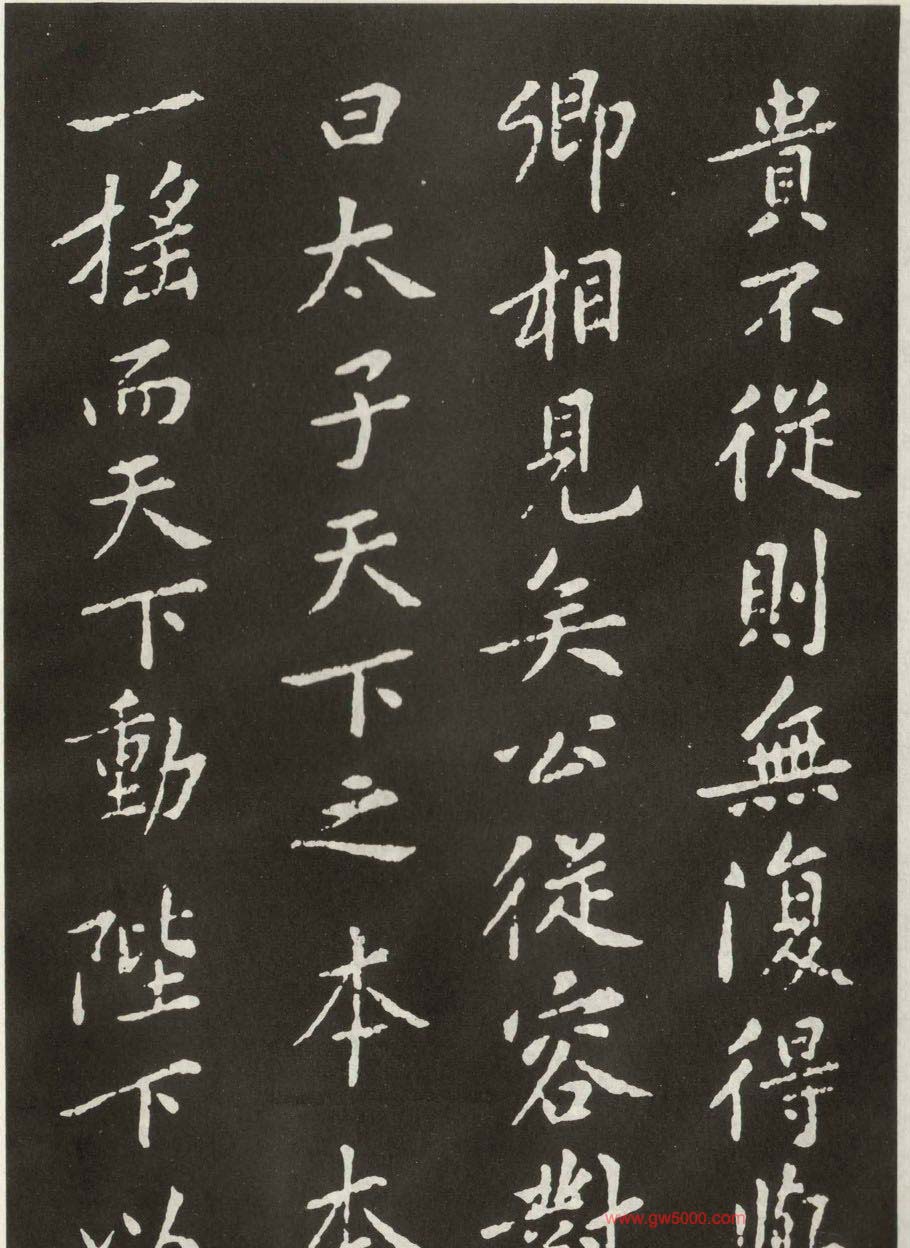 貴不從則無復得與
卿相見矣公從容對
曰太子天下之本本
一搖而天下動陛下以
www.gw5000.com